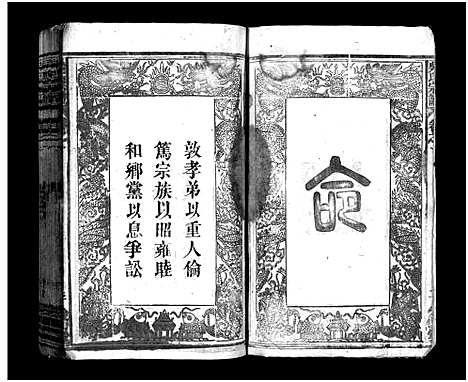 命
敦孝弟以重人倫
篤宗族以昭雍睦
和鄉黨以息爭訟